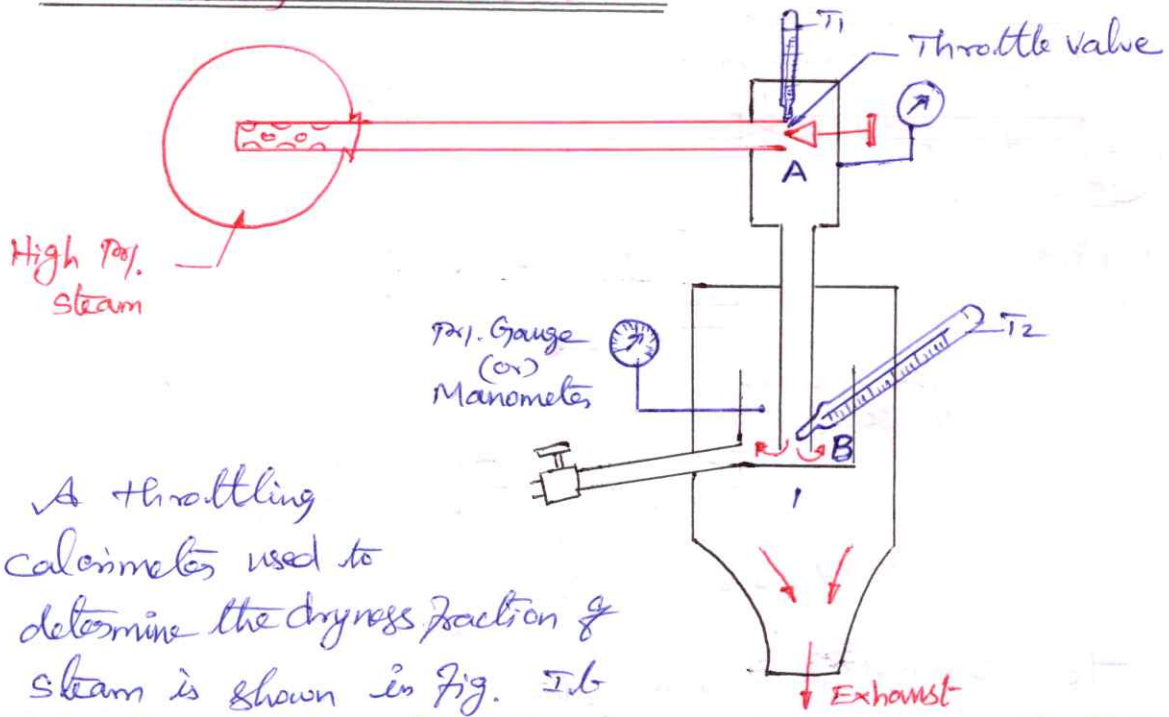 T1
Throttle valve
A
High Pr.
steam
Pr. Gauge
(or)
Manometer
T2
B
A throttling
calorimeter used to
determine the dryness fraction of
steam is shown in Fig. It
Exhaust